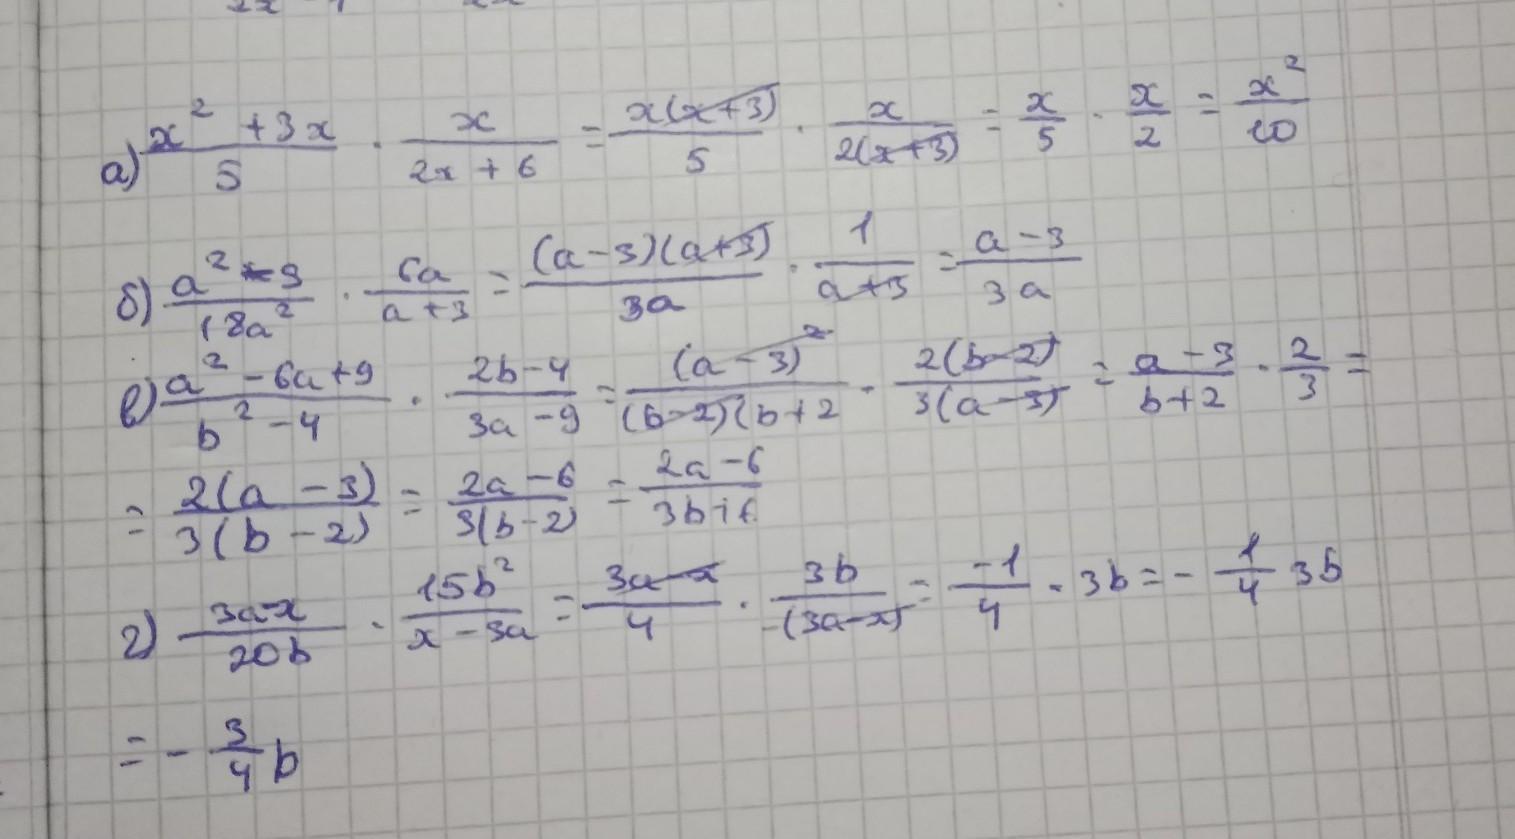 а) x² + 3x / 5 · x / 2x + 6 = x(x+3) / 5 · x / 2(x+3) = x/5 · x/2 = x² / 10
б) a² - 9 / 18a² · 6a / a+3 = (a-3)(a+3) / 3a · 1 / a+3 = a-3 / 3a
в) a² - 6a + 9 / b² - 4 · 2b-4 / 3a-9 = (a-3)² / (b-2)(b+2 · 2(b-2) / 3(a-3) = a-3 / b+2 · 2/3 =
= 2(a-3) / 3(b-2) = 2a-6 / 3(b-2) = 2a-6 / 3b+6
г) 3a-x / 20b · 15b² / x-3a = 3a-x / 4 · 3b / -(3a-x) = -1/4 · 3b = - 1/4 3b
= - 3/4 b